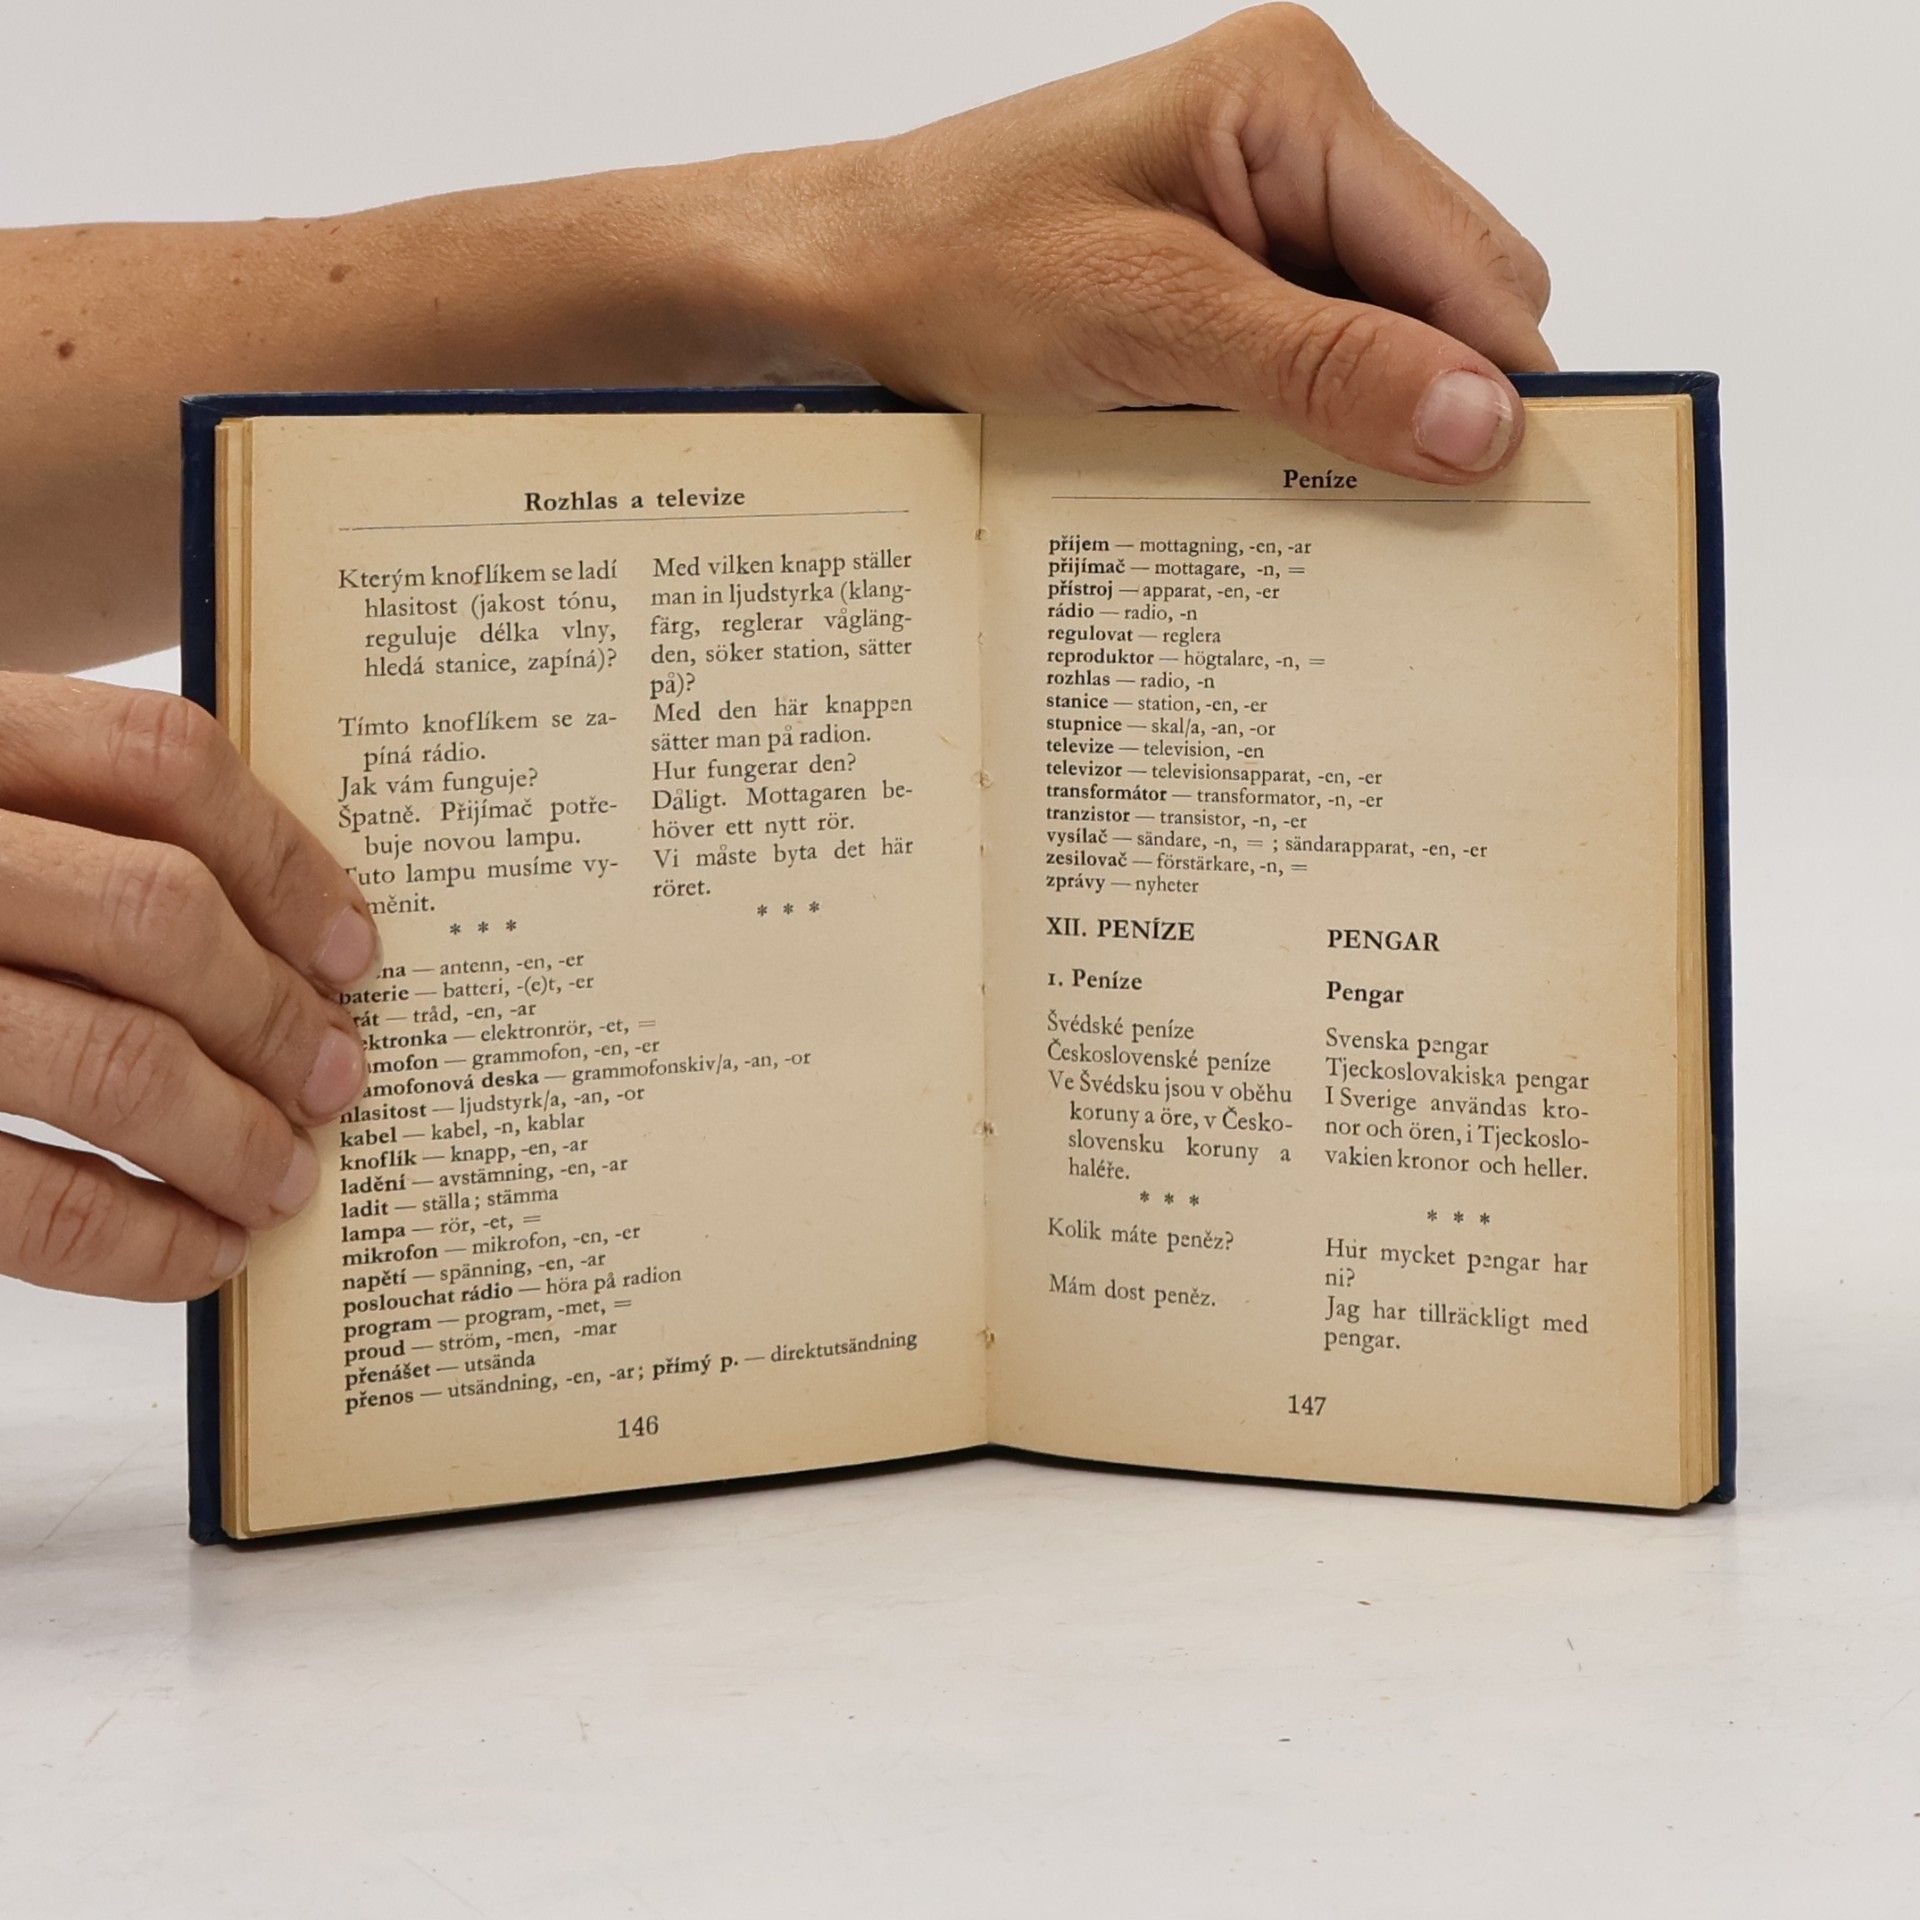 Rozhlas a televize
Kterým knoflíkem se ladí
hlasitost (jakost tónu,
reguluje délka vlny,
hledá stanice, zapíná)?
Tímto knoflíkem se za-
píná rádio.
Jak vám funguje?
Špatně. Přijímač potře-
buje novou lampu.
Tuto lampu musíme vy-
měnit.
* * *
Med vilken knapp ställer
man in ljudstyrka (klang-
färg, reglerar vågläng-
den, söker station, sätter
på)?
Med den här knappen
sätter man på radion.
Hur fungerar den?
Dåligt. Mottagaren be-
höver ett nytt rör.
Vi måste byta det här
röret.
* * *
na — antenn, -en, -er
baterie — batteri, -(e)t, -er
rát — tråd, -en, -ar
ektronka — elektronrör, -et, =
amofon — grammofon, -en, -er
amofonová deska — grammofonskiv/a, -an, -or
hlasitost — ljudstyrk/a, -an, -or
kabel — kabel, -n, kablar
knoflík — knapp, -en, -ar
ladění — avstämning, -en, -ar
ladit — ställa; stämma
lampa — rör, -et, =
mikrofon — mikrofon, -en, -er
napětí — spänning, -en, -ar
poslouchat rádio — höra på radion
program — program, -met, =
proud — ström, -men, -mar
přenášet — utsända
přenos — utsändning, -en, -ar; přímý p. — direktutsändning
146
Peníze
příjem — mottagning, -en, -ar
přijímač — mottagare, -n, =
přístroj — apparat, -en, -er
rádio — radio, -n
regulovat — reglera
reproduktor — högtalare, -n, =
rozhlas — radio, -n
stanice — station, -en, -er
stupnice — skal/a, -an, -or
televize — television, -en
televizor — televisionsapparat, -en, -er
transformátor — transformator, -n, -er
tranzistor — transistor, -n, -er
vysílač — sändare, -n, = ; sändarapparat, -en, -er
zesilovač — förstärkare, -n, =
zprávy — nyheter
XII. PENÍZE
1. Peníze
Švédské peníze
Československé peníze
Ve Švédsku jsou v oběhu
koruny a öre, v Česko-
slovensku koruny a
haléře.
* * *
Kolik máte peněz?
Mám dost peněz.
PENGAR
Pengar
Svenska pengar
Tjeckoslovakiska pengar
I Sverige användas kro-
nor och ören, i Tjeckoslo-
vakien kronor och heller.
* * *
Hur mycket pengar har
ni?
Jag har tillräckligt med
pengar.
147